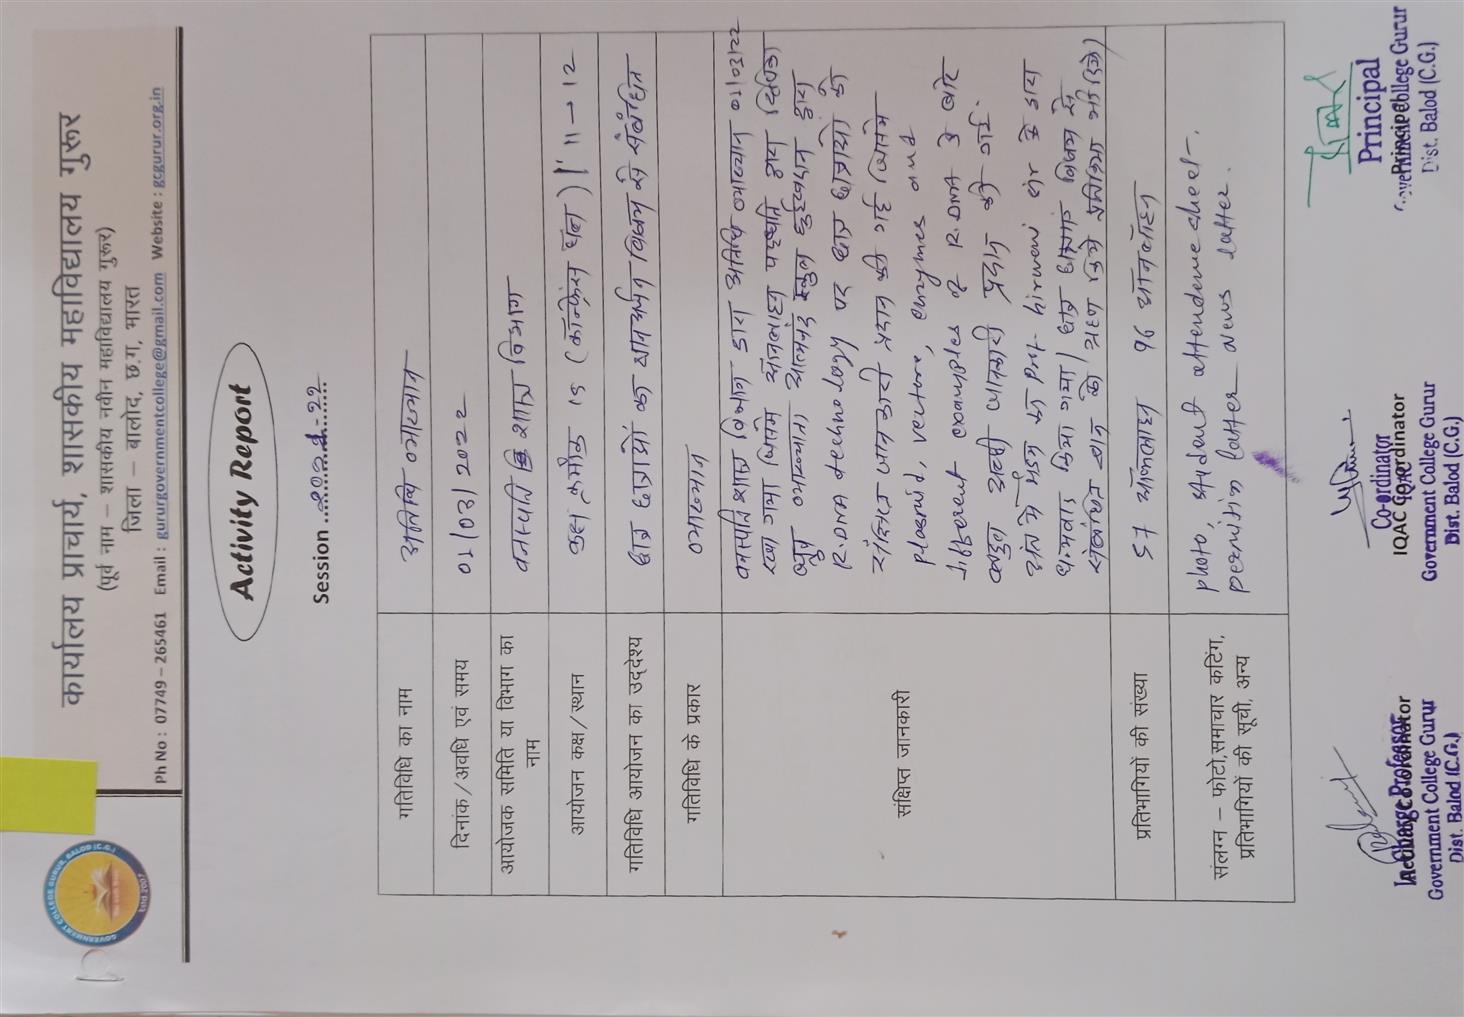 कार्यालय प्राचार्य, शासकीय महाविद्यालय गुरूर
(पूर्व नाम – शासकीय नवीन महाविद्यालय गुरूर)
जिला – बालोद, छ.ग. भारत
Ph No : 07749 – 265461 Email : gururgovernmentcollege@gmail.com Website : gcgurur.org.in
GOVERNMENT COLLEGE GURUR, BALOD (C.G.)
Activity Report
Session ..2021-22..
गतिविधि का नाम अतिथि व्याख्यान
दिनांक/अवधि एवं समय 01/03/2022
आयोजक समिति या विभाग का वनस्पति शास्त्र विभाग
नाम
आयोजन कक्ष/स्थान कक्ष क्रमांक 15 (कॉन्फ्रेंस हॉल) 11 – 12
गतिविधि आयोजन का उद्देश्य छात्र छात्राओं का ज्ञानवर्धन विषय से संबंधित
गतिविधि के प्रकार व्याख्यान
संक्षिप्त जानकारी
वनस्पति शास्त्र विभाग द्वारा अतिथि व्याख्यान 01/03/22
रखा गया जिसमे ऑनलाइन पद्धति द्वारा
व्याख्याता आत्मानंद स्कूल द्वारा
R.DNA technology पर छात्र छात्राओं को
जानकारी प्रदान की गई जिसमे
plasmid, vectors, enzymes and
different examples of R.DNA के बारे
जानकारी प्रदान की गई.
अंत मे मैडम का Prof. hirwani सर के द्वारा
धन्यवाद किया गया
प्रतिभागियों की संख्या 57 ऑफलाइन 96 ऑनलाइन
संलग्न – फोटो,समाचार कटिंग, photo, student attendence sheet-,
प्रतिभागियों की सूची, अन्य latter news latter.
Incharge Professor
Activity Coordinator
Government College Gurur
Dist. Balod (C.G.)
Co-ordinator
IQAC Coordinator
Government College Gurur
Dist. Balod (C.G.)
Principal
Principal
Government College Gurur
Dist. Balod (C.G.)